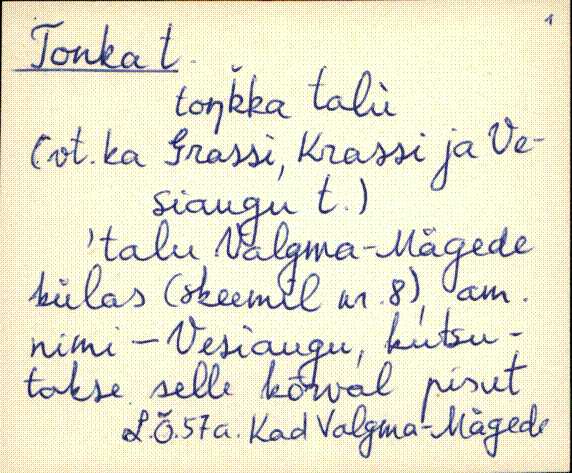 1
Tonka t.
toŋ̆kka talù
(vt. ka Grassi, Krassi ja Ve-
siaugu t.)
'talu Valgma-Mägede
külas (skeemil nr. 8), am.
nimi – Vesiaugu, kutsu-
takse selle kõrval pisut
L.Õ. 57a. Kad Valgma-Mägede